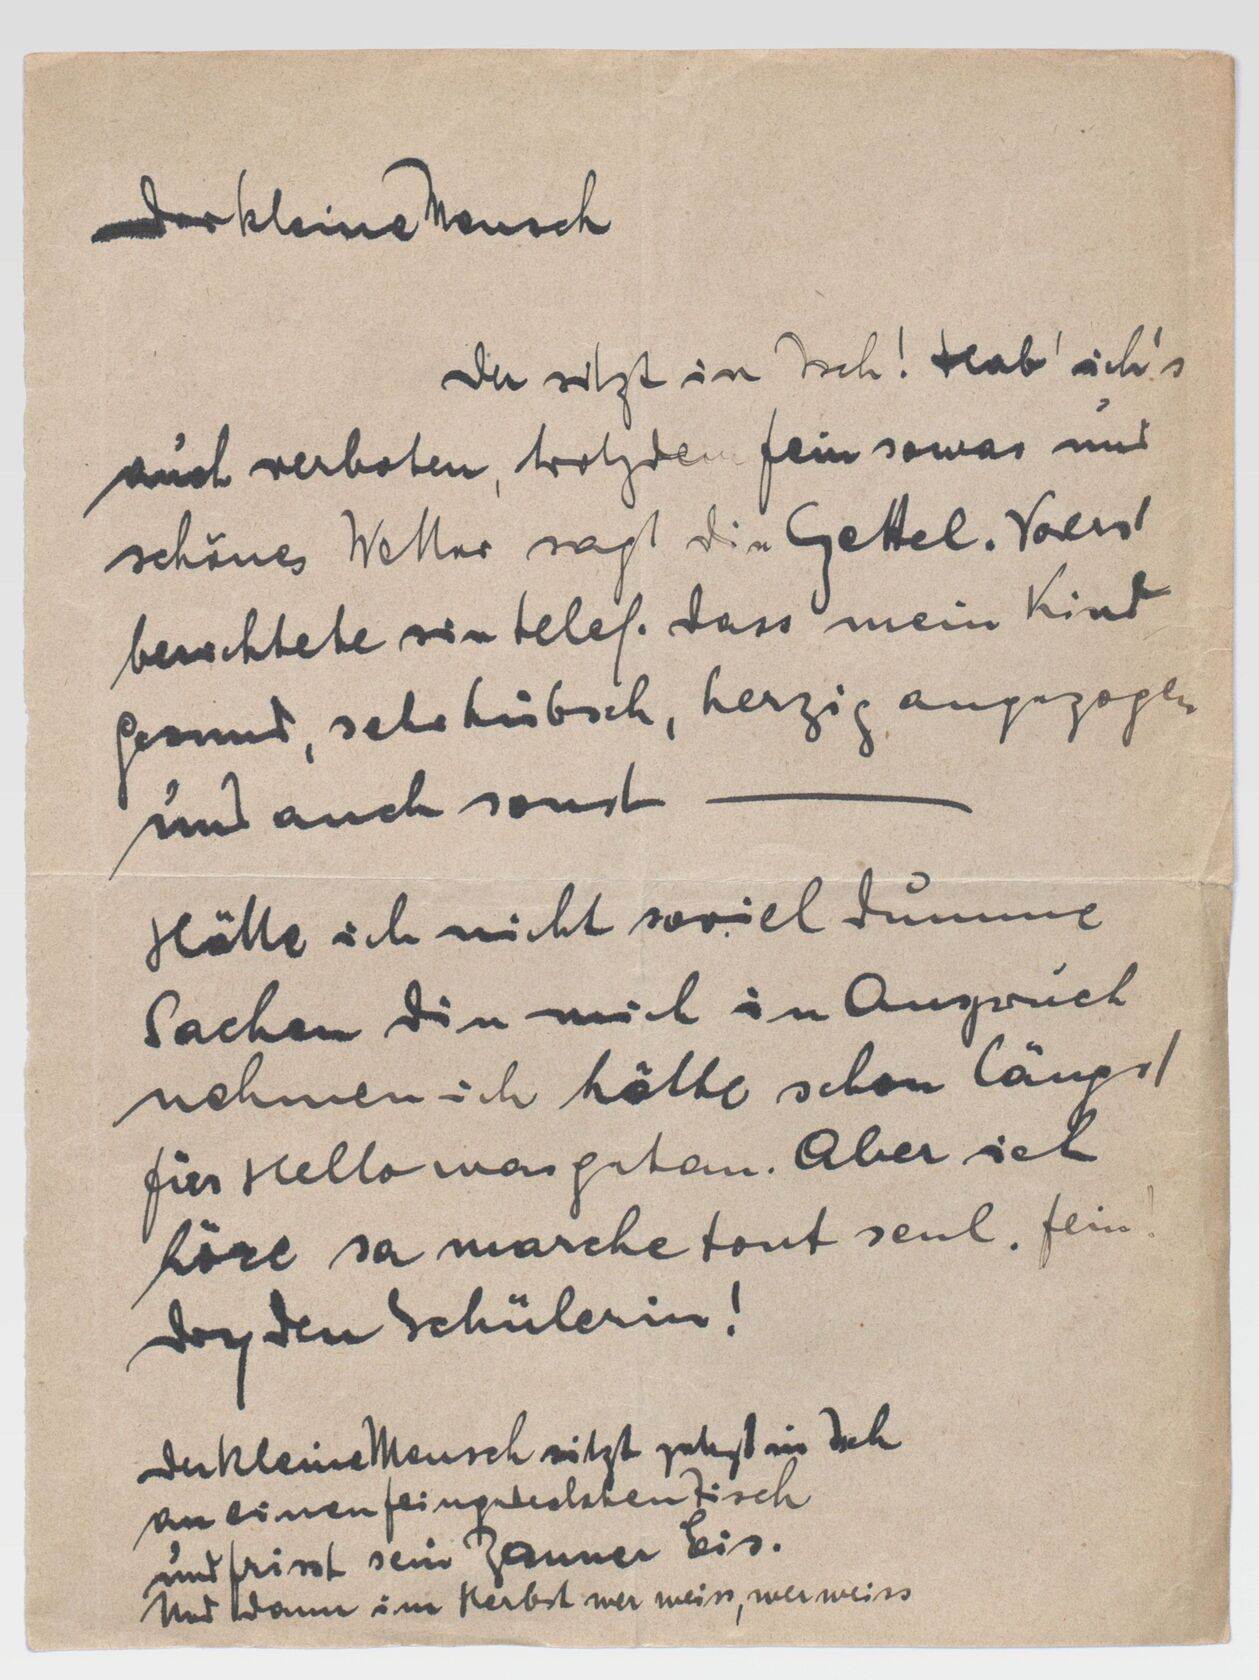 Der kleine Mensch
Der sitzt in Isch! Hab' ich's
auch verboten, trotzdem fein sowas und
schönes Wetter sagt die Gettel. Vorerst
berichtete sie telef. dass mein Kind
gesund, sehr hübsch, herzig angezogen
und auch sonst —
Hätte ich nicht soviel dumme
Sachen die mich in Anspruch
nehmen ich hätte schon längst
für Hello was getan. Aber ich
höre sa marche tout seul. fein!
den Schülerin!
Der kleine Mensch sitzt in Isch
an einen feingedeckten Tisch
und frisst sein Zauner Eis.
Und dann im Herbst wer weiss, wer weiss